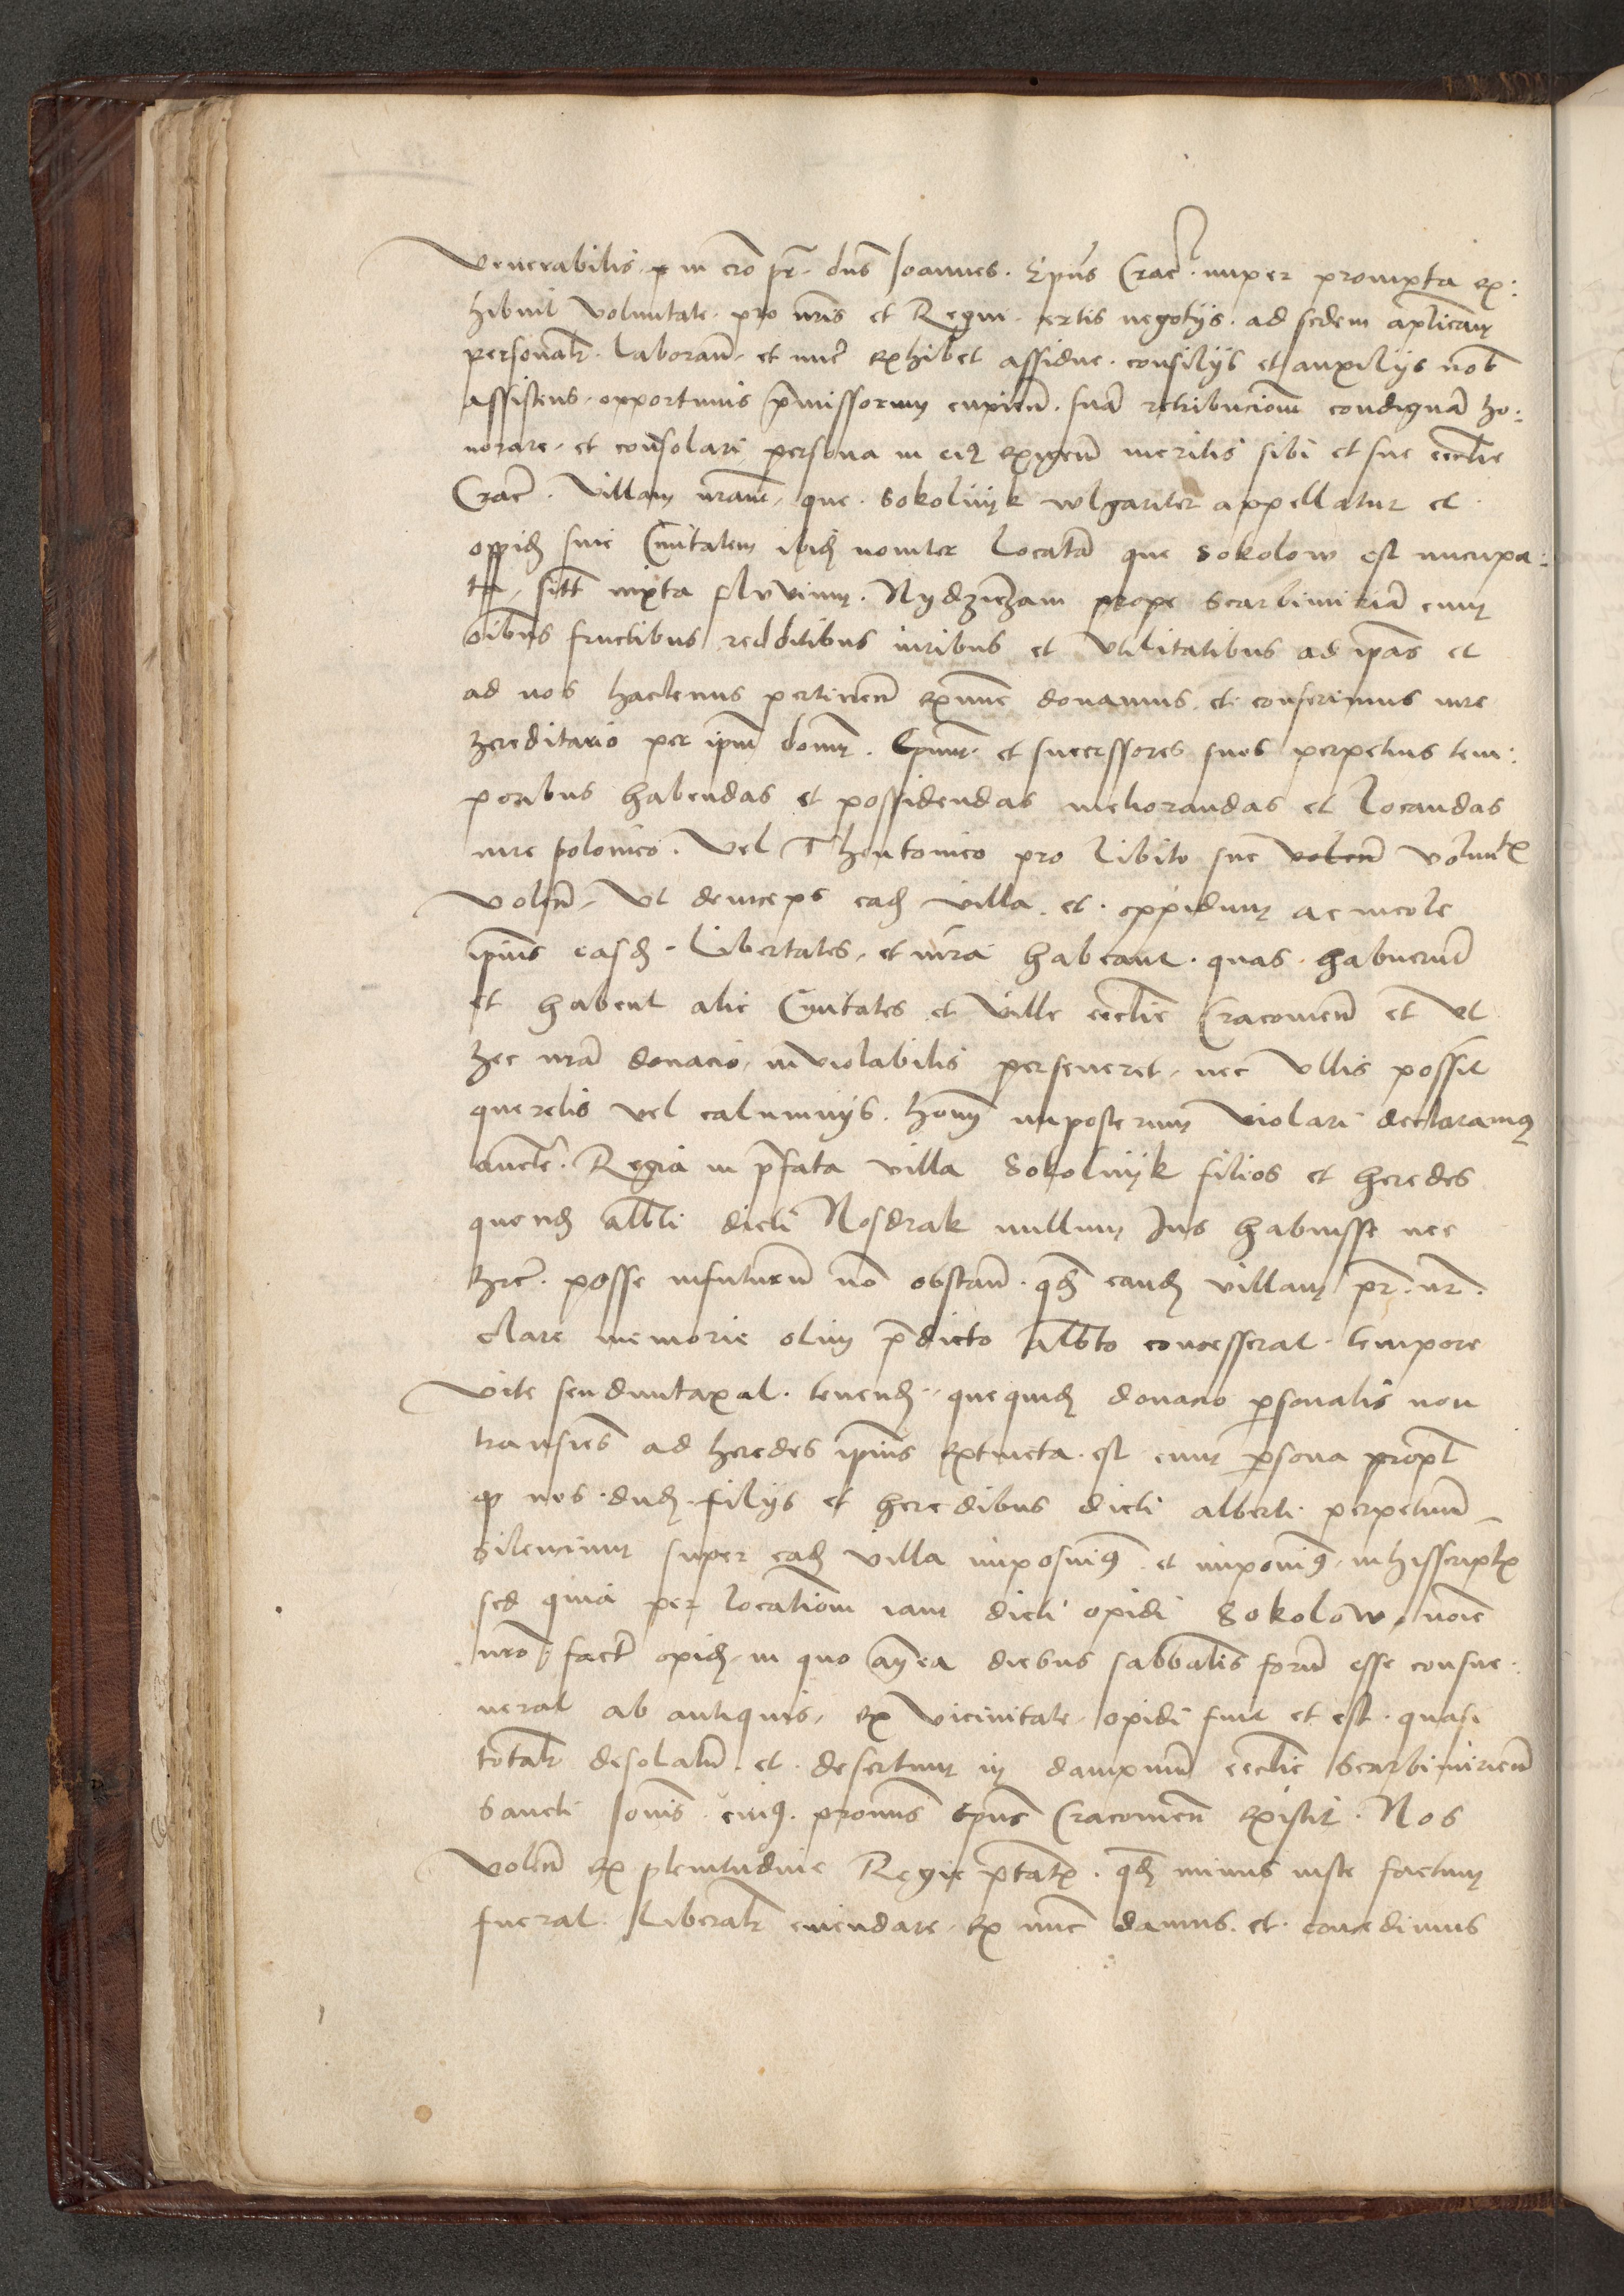 Venerabilis in cro pr. dns Joannes. Epus Crac. nuper prompta ex:
hibuit voluntate. pro nris et Regni. certis negotijs. ad sedem aplicam
personalr. laboran. et nunc exhibet assidue. consilijs et auxilijs nob
assistens. opportunis pmissorum cupien. sua retribucionem condigna ho:
norare. et consolari persona in eius exigen meritis sibi et sue ecclie
Crac. Villam nram. que. Sokolnijk wlgariter appellatur et
oppid sive Civitatem ibid noviter locata que Sokolow est nucupa:
ta, sitt iuxta fluvium. Nydziczam prope Scarbimiria cum
oibus fructibus redditibus iuribus et Vtilitatibus ad ipas et
ad nos hactenus pertinen exnunc donamus. et conferimus iure
hereditario per ipm domm. Epum. et successores suos perpetuis tem:
poribus habendas et possidendas meliorandas et locandas
iure polonico. Vel Theutonico pro libito sue volen volunt
volen, Vt deinceps ead villa. et. oppidum ac incole
ipius easd. libertates, et iura habeant. quas. habuerut
et habent alie Civitates et Ville ecclie Cracovien et Vt
hec nra donacio, inviolabilis perseveret, nec Vllis possit
querelis vel calumnijs. homm imposterum violari declaramus
aucte. Regia in pfata villa Sokolnijk filios et heredes
quond Albti dicti Nosdrak nullum Ius habuisse nec
hre. posse infuturu no obstan. qd eand villam pr. nr.
clare memorie olim pdicto Albto concesserat. tempore
vite seu duntaxat. tenend. quequid donacio psonalis non
transies ad heredes ipius extincta. est cum psona propt
qd nos. dud. filijs et heredibus dicti alberti. perpetuu
silencium super ead villa imposuimus. et imponimus. inhisscriptis
sed quia per locationem iam dicti opidi Sokolow. noie
nro fact opid. in quo antea diebus sabbatis foru esse consue:
verat ab antiquis, ex vicinitate. opidi fuit et est. quasi
totalr desolatu. et. desertum in dampnum ecclie Scarbimirien
Sancti Jonis. cuius. pronus epus Cracovien existit. Nos
volen ex plenitudine Regie ptatis. qd minus iuste factum
fuerat. liberalr emendare. ex nunc damus. et. concedimus